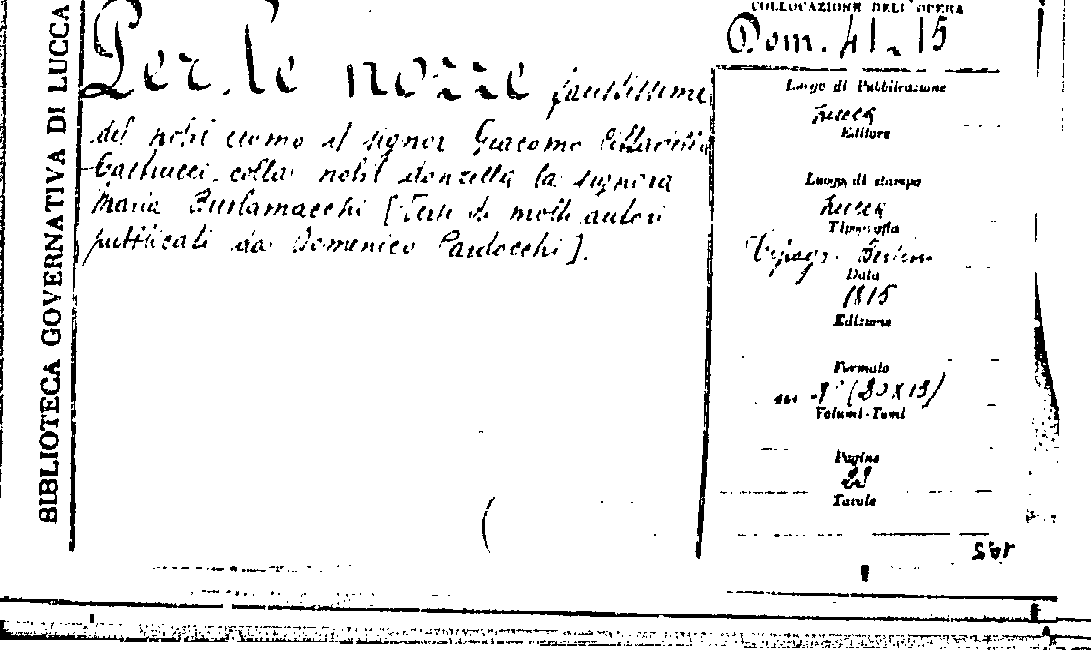 BIBLIOTECA GOVERNATIVA DI LUCCA
Per le nozze faustissime
del nobil uomo il signor Giacomo
colla nobil donzella la signora
Maria Burlamacchi [Versi di molti autori
pubblicati da Domenico Pardocchi].
COLLOCAZIONE DELL'OPERA
Dom. 41-15
Luogo di Pubblicazione
Lucca
Editore
Luogo di stampa
Lucca
Tipografia
Tipogr. Bertini
Data
1815
Edizione
Formato
in 8° (20x13)
Volumi-Tomi
Pagine
22
Tavole